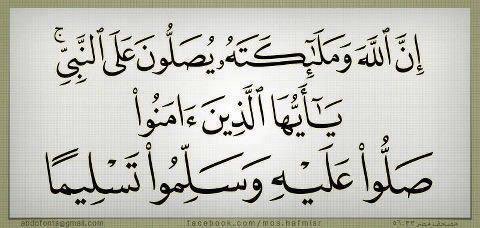 إِنَّ ٱللَّهَ وَمَلَـٰٓئِكَتَهُۥ يُصَلُّونَ عَلَى ٱلنَّبِىِّ ۚ
يَـٰٓأَيُّهَا ٱلَّذِينَ ءَامَنُوا۟
صَلُّوا۟ عَلَيْهِ وَسَلِّمُوا۟ تَسْلِيمًا
abdofonts@gmail.com facebook.com/mos.hafmisr مصحف مصر ٥٦:٣٣